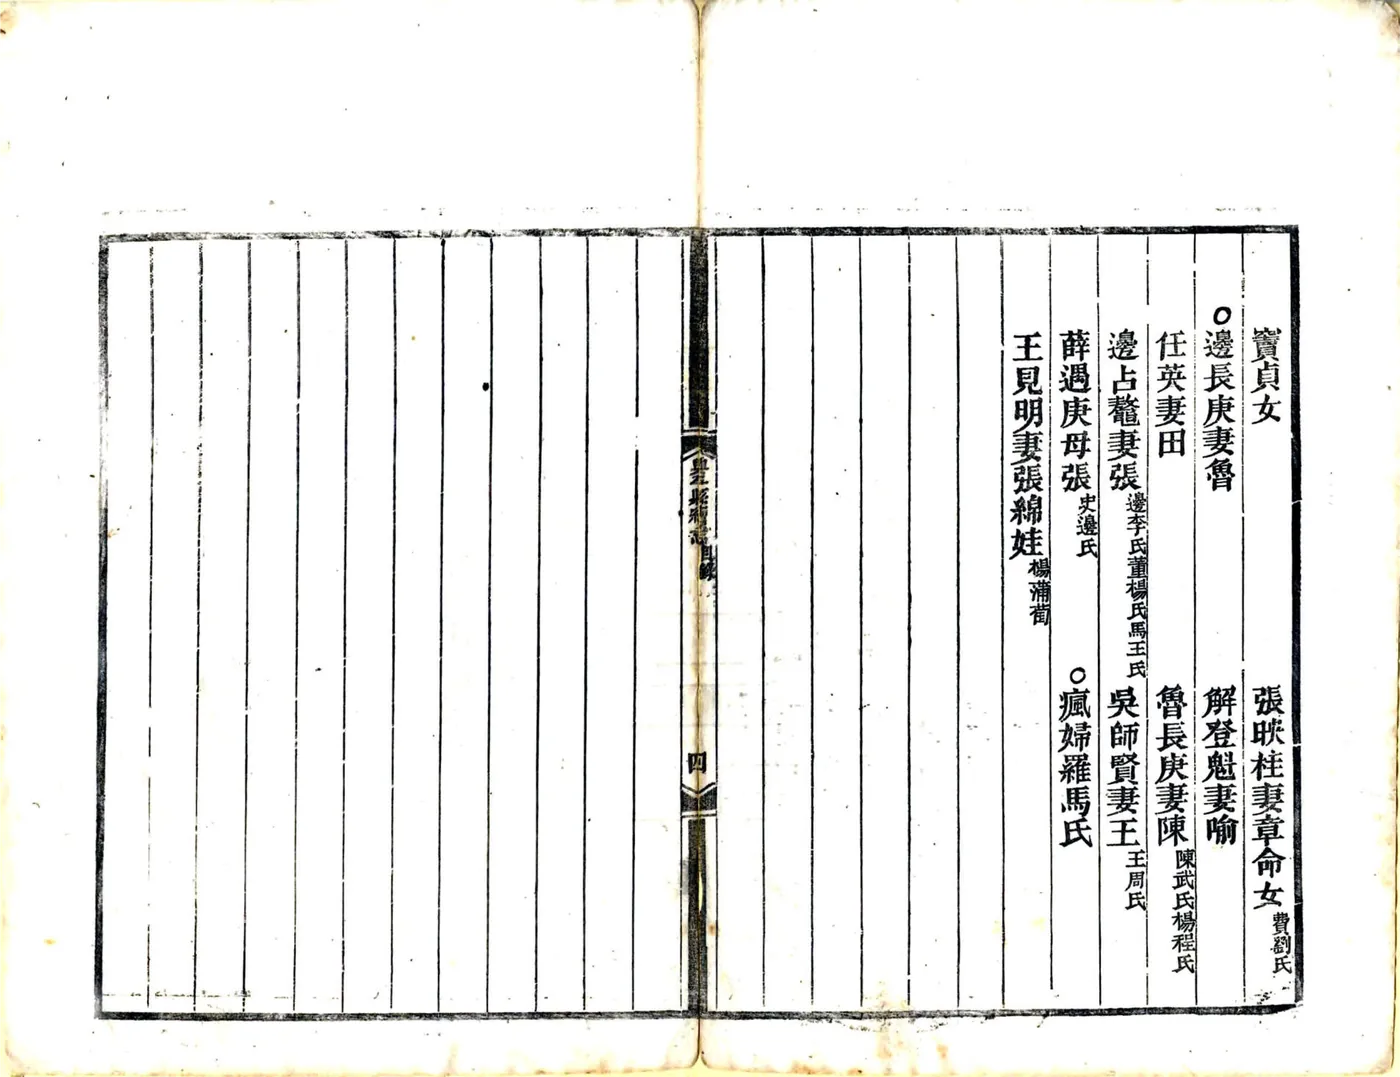 竇貞女　張映柱妻章命女費劉氏
○邊長庚妻魯　解登魁妻喻
任英妻田　魯長庚妻陳陳武氏楊程氏
邊占鼇妻張邊李氏董楊氏馬王氏　吳師賢妻王王周氏
薛遇庚母張史邊氏　○瘋婦羅馬氏
王見明妻張綿娃楊蒲萄
縣 志 目錄　四